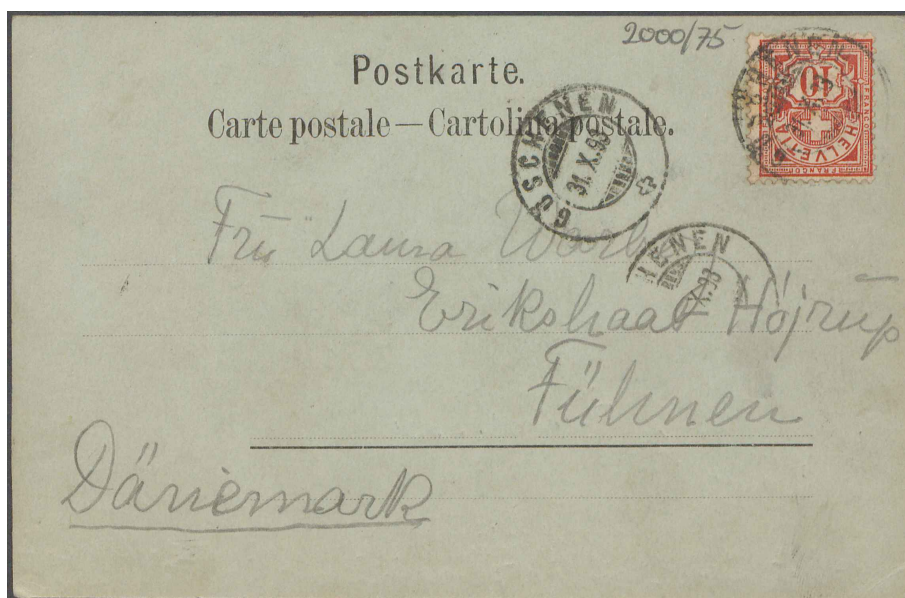 2000/75
Postkarte.
Carte postale — Cartolina postale.
GÖSCHENEN
31. X. 93
10
HELVETIA
FRANCO
Fru Laura Warb
HENEN
X. 93
Erikshaab Højrup
Fühnen
Dänemark